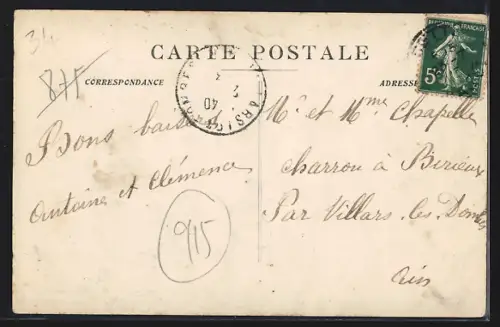 34
875
CARTE POSTALE
CORRESPONDANCE
ADRESSE
REPUBLIQUE FRANÇAISE
5c
POSTES
2
40
Bons baisers
Antoine et Clémence
915
Mr et Mme Chapelle
charron à Birieux
Par Villars les Dombes
Ain